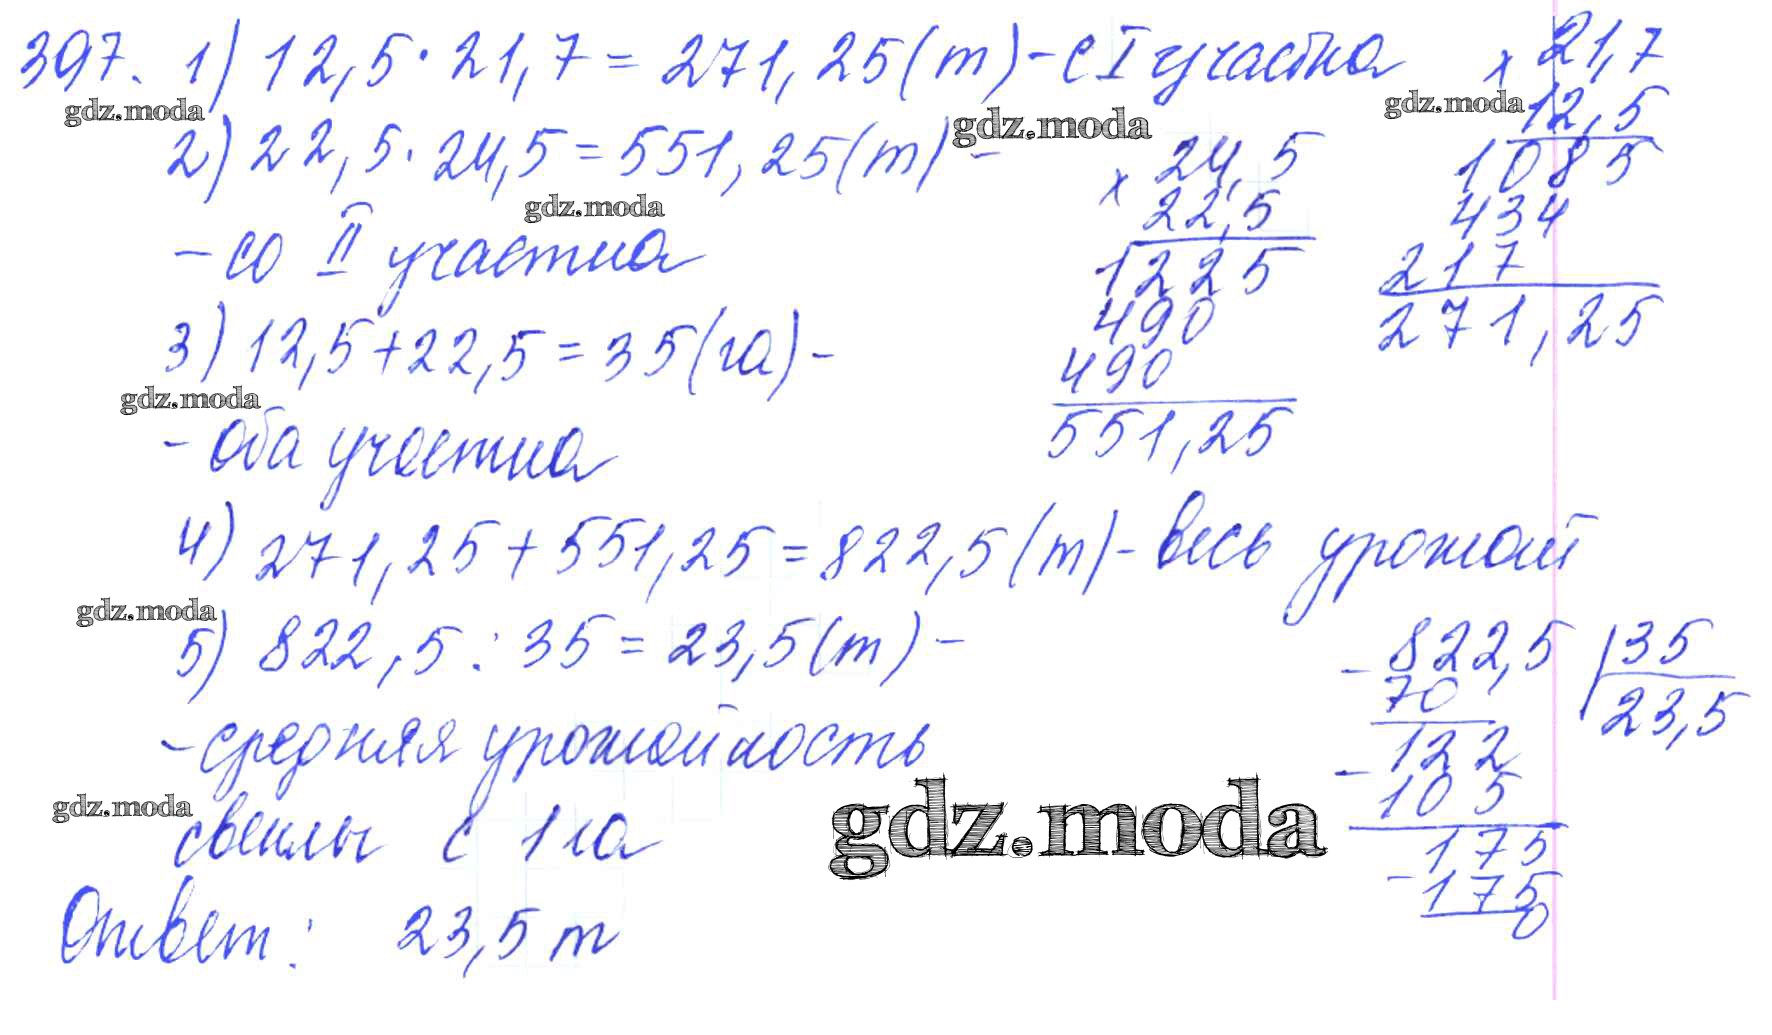 397. 1) 12,5 · 21,7 = 271,25 (т) - с I участка
gdz.moda
2) 22,5 · 24,5 = 551,25 (т) -
gdz.moda
gdz.moda
- со II участка
3) 12,5 + 22,5 = 35 (га) -
gdz.moda
- оба участка
4) 271,25 + 551,25 = 822,5 (т) - весь урожай
gdz.moda
5) 822,5 : 35 = 23,5 (т) -
- средняя урожайность
gdz.moda
свеклы с 1 га
Ответ: 23,5 т
× 24,5
22,5
1225
490
490
551,25
× 21,7
gdz.moda
12,5
1085
434
217
271,25
- 822,5 | 35
70 23,5
- 122
105
- 175
175
0
gdz.moda